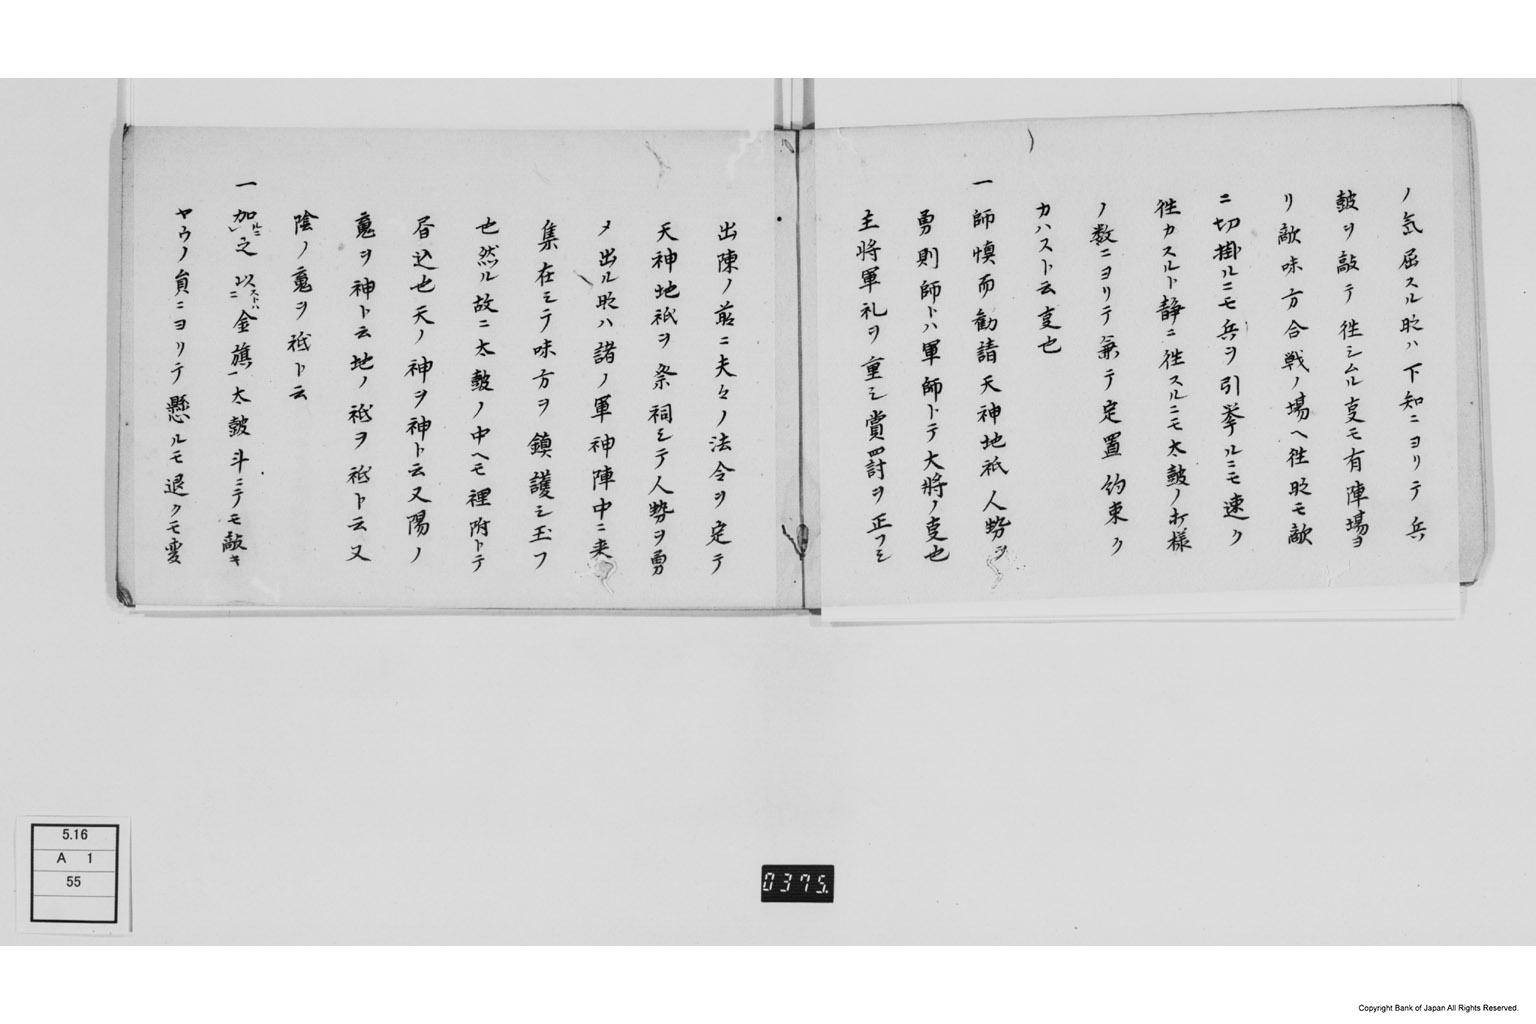 ノ気屈スル時ハ下知ニヨリテ兵
皷ヲ敲テ徃シムル叓モ有陣場ヨ
リ敵味方合戦ノ場ヘ徃時モ敵
ニ切掛ルニモ兵ヲ引挙ルニモ速ク
徃カスルト静ニ徃スルニモ太皷ノ打様
ノ数ニヨリテ兼テ定置約束ク
カハスト云叓也
一師慎而勧請天神地祇人勢ヲ
勇則師トハ軍師トテ大将ノ叓也
主将軍礼ヲ重シ賞罸ヲ正フシ
出陳ノ前ニ夫々ノ法令ヲ定テ
天神地祇ヲ祭祠シテ人勢ヲ勇
メ出ル時ハ諸ノ軍神陣中ニ来
集在シテ味方ヲ鎮護シ玉フ
也然ル故ニ太皷ノ中ヘモ裡附トテ
沓込也天ノ神ヲ神ト云又陽ノ
䰠ヲ神ト云地ノ祇ヲ祇ト云又
陰ノ䰠ヲ祇ト云
一加ルニ之以ストハニ金旗太皷斗ニテモ敲キ
ヤウノ員ニヨリテ懸ルモ退クモ変
5.16
A 1
55
0375.
Copyright Bank of Japan All Rights Reserved.